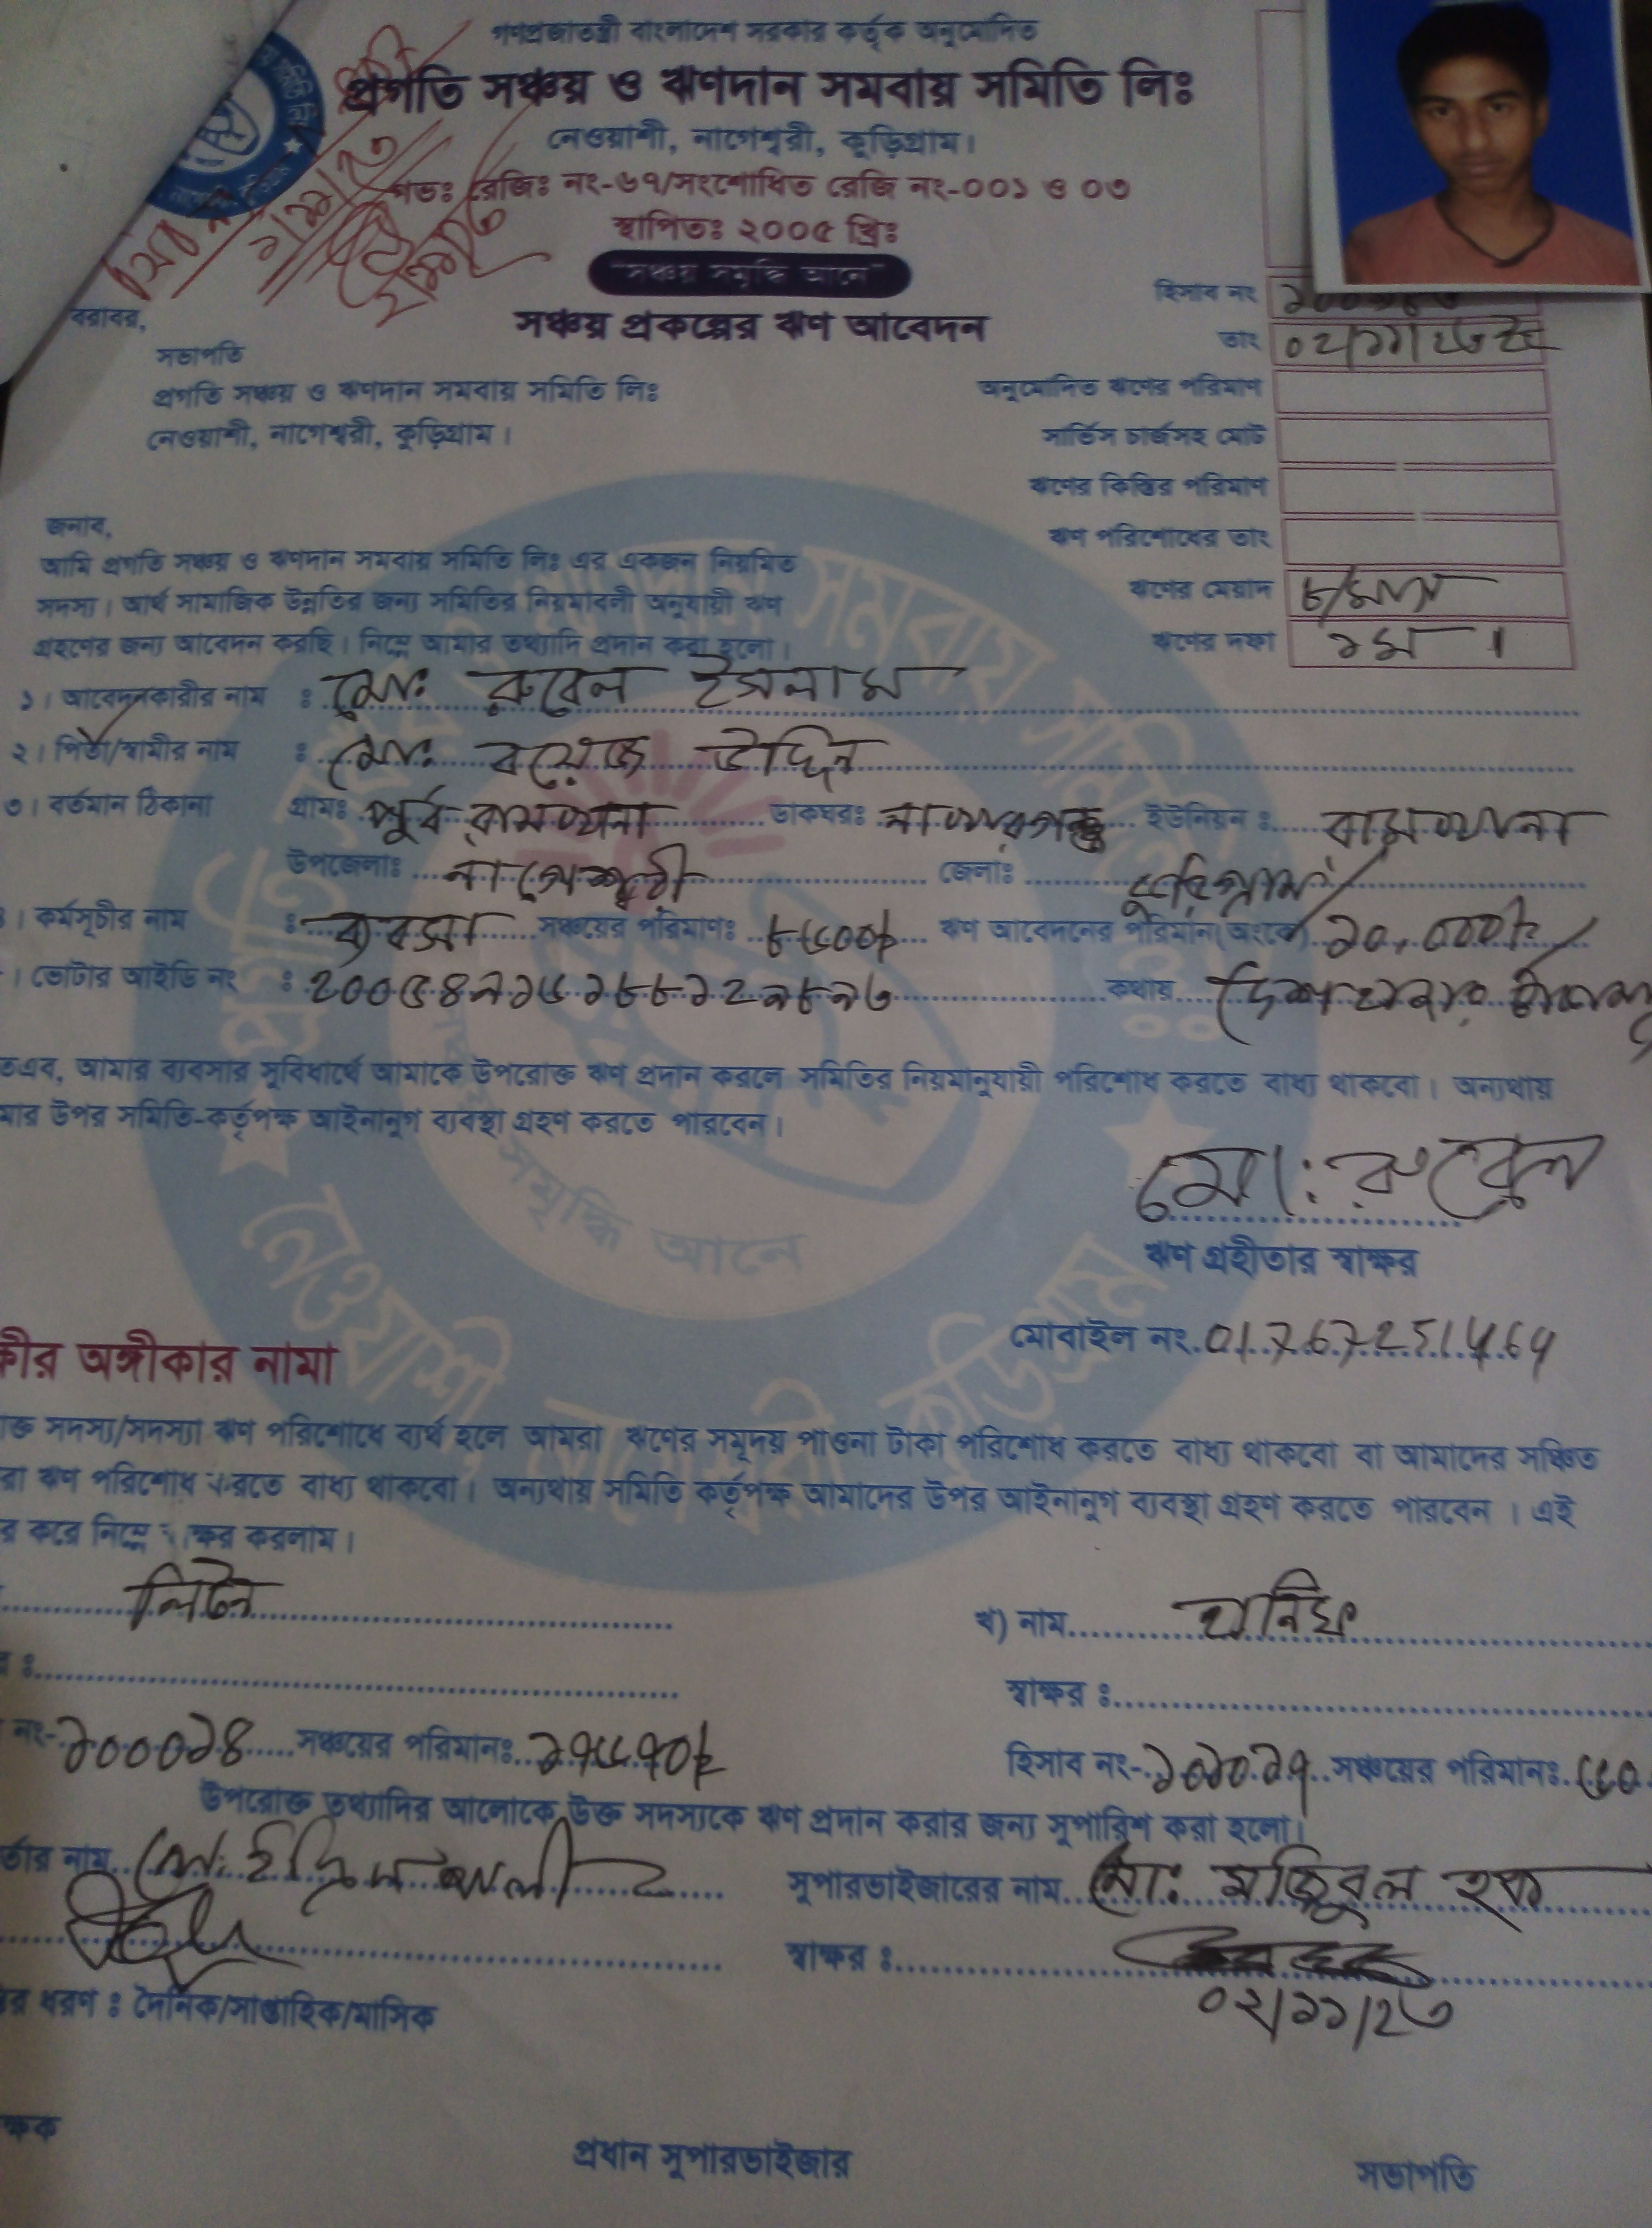 গণপ্রজাতন্ত্রী বাংলাদেশ সরকার কর্তৃক অনুমোদিত
প্রগতি সঞ্চয় ও ঋণদান সমবায় সমিতি লিঃ
নেওয়াশী, নাগেশ্বরী, কুড়িগ্রাম।
গভঃ রেজিঃ নং-৬৭/সংশোধিত রেজি নং-০০১ ও ০৩
স্থাপিতঃ ২০০৫ খ্রিঃ
"সঞ্চয় সমৃদ্ধি আনে"
সঞ্চয় প্রকল্পের ঋণ আবেদন
হিসাব নং
তাং ০২/১১/২৩
বরাবর,
সভাপতি
প্রগতি সঞ্চয় ও ঋণদান সমবায় সমিতি লিঃ
নেওয়াশী, নাগেশ্বরী, কুড়িগ্রাম।
অনুমোদিত ঋণের পরিমাণ
সার্ভিস চার্জসহ মোট
ঋণের কিস্তির পরিমাণ
ঋণ পরিশোধের তাং
ঋণের মেয়াদ ৮/মাস
ঋণের দফা ১ম।
জনাব,
আমি প্রগতি সঞ্চয় ও ঋণদান সমবায় সমিতি লিঃ এর একজন নিয়মিত
সদস্য। আর্থ সামাজিক উন্নতির জন্য সমিতির নিয়মাবলী অনুযায়ী ঋণ
গ্রহণের জন্য আবেদন করছি। নিম্নে আমার তথ্যাদি প্রদান করা হলো।
১। আবেদনকারীর নাম : মোঃ রুবেল ইসলাম
২। পিতা/স্বামীর নাম : মোঃ বয়েজ উদ্দিন
৩। বর্তমান ঠিকানা গ্রামঃ পূর্ব রামখানা ডাকঘরঃ নাখারগঞ্জ ইউনিয়ন : রামখানা
উপজেলাঃ নাগেশ্বরী জেলাঃ কুড়িগ্রাম
। কর্মসূচীর নাম : ব্যবসা সঞ্চয়ের পরিমাণঃ ৮৫০০/- ঋণ আবেদনের পরিমান(অংকে) ১০,০০০/-
। ভোটার আইডি নং : ২০০৫৪৯১৬১৮৮১২৯৮৯৬ কথায় দশ হাজার টাকা
তএব, আমার ব্যবসার সুবিধার্থে আমাকে উপরোক্ত ঋণ প্রদান করলে সমিতির নিয়মানুযায়ী পরিশোধ করতে বাধ্য থাকবো। অন্যথায়
মার উপর সমিতি-কর্তৃপক্ষ আইনানুগ ব্যবস্থা গ্রহণ করতে পারবেন।
মো: রুবেল
ঋণ গ্রহীতার স্বাক্ষর
মোবাইল নং. 01767251464
ক্ষীর অঙ্গীকার নামা
ক্ত সদস্য/সদস্যা ঋণ পরিশোধে ব্যর্থ হলে আমরা ঋণের সমূদয় পাওনা টাকা পরিশোধ করতে বাধ্য থাকবো বা আমাদের সঞ্চিত
রা ঋণ পরিশোধ করতে বাধ্য থাকবো। অন্যথায় সমিতি কর্তৃপক্ষ আমাদের উপর আইনানুগ ব্যবস্থা গ্রহণ করতে পারবেন। এই
র করে নিম্নে ক্ষর করলাম।
লিটন
খ) নাম হানিফ
র :
স্বাক্ষর :
নং- ১০০০১৪ সঞ্চয়ের পরিমানঃ ১৭৫৭০/-
হিসাব নং- ১০১০১৭ সঞ্চয়ের পরিমানঃ ৫০
উপরোক্ত তথ্যাদির আলোকে উক্ত সদস্যকে ঋণ প্রদান করার জন্য সুপারিশ করা হলো।
র্তার নাম মো: ইদ্রিস আলী
সুপারভাইজারের নাম মোঃ মজিবুল হক
স্বাক্ষর :
০২/১১/২৩
র ধরণ : দৈনিক/সাপ্তাহিক/মাসিক
ক্ষক
প্রধান সুপারভাইজার
সভাপতি